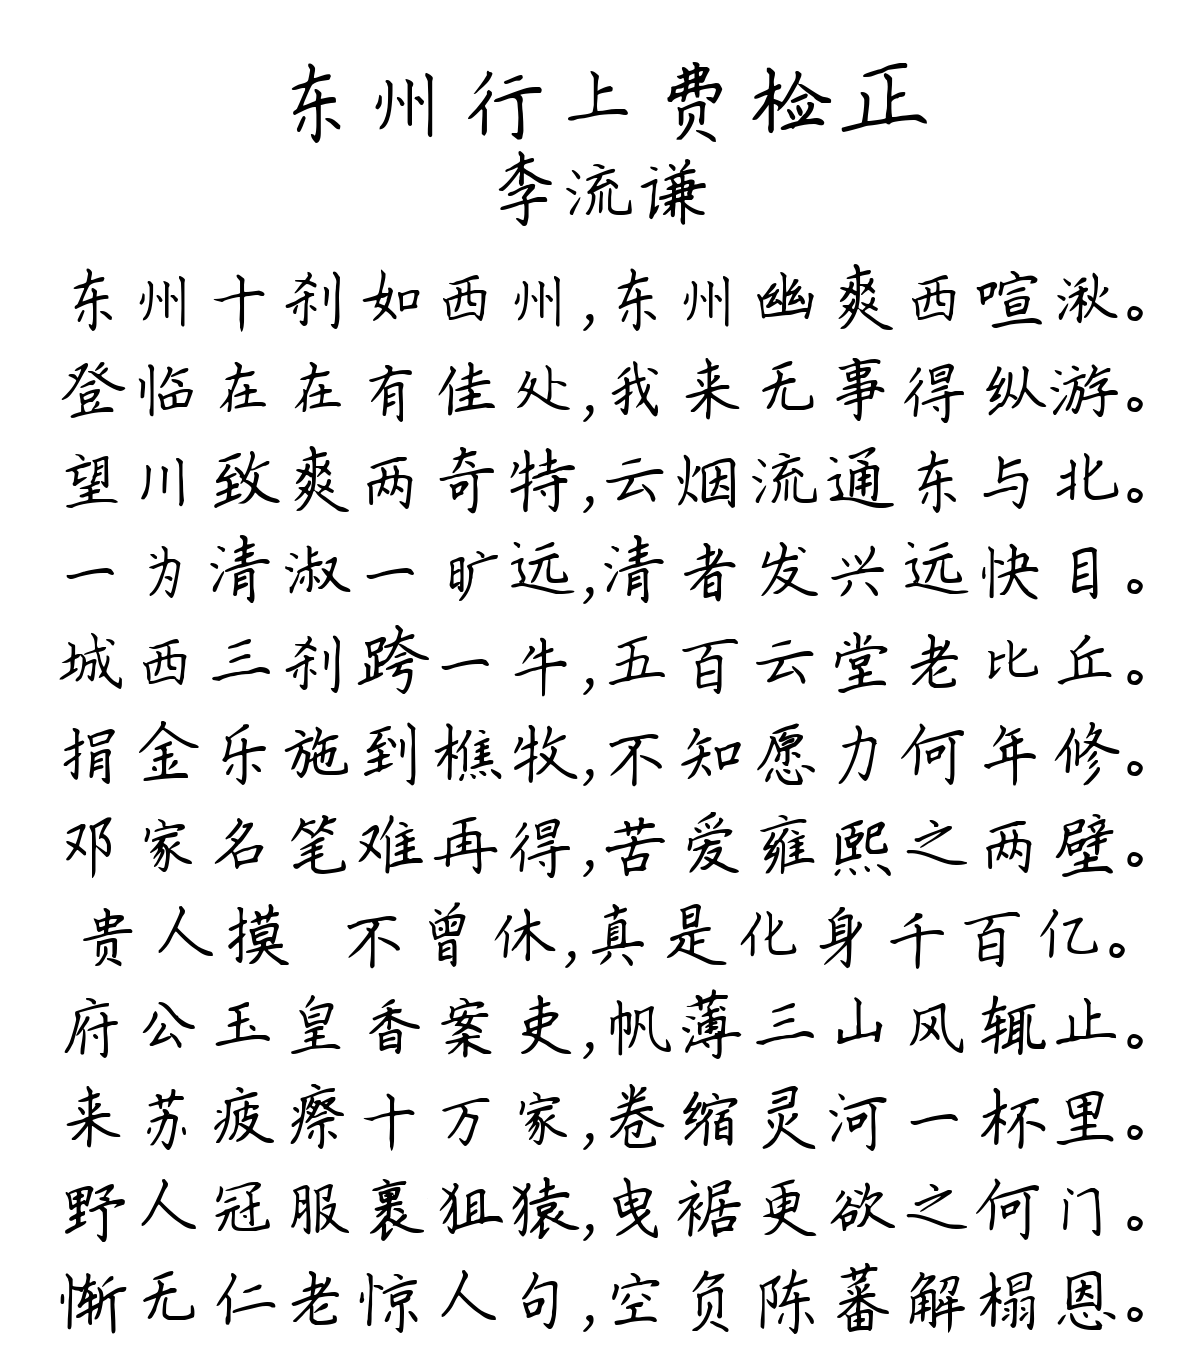 东州行上费检正
李流谦
东州十刹如西州,东州幽爽西喧湫。
登临在在有佳处,我来无事得纵游。
望川致爽两奇特,云烟流通东与北。
一为清淑一旷远,清者发兴远快目。
城西三刹跨一牛,五百云堂老比丘。
捐金乐施到樵牧,不知愿力何年修。
邓家名笔难再得,苦爱雍熙之两壁。
贵人摸 不曾休,真是化身千百亿。
府公玉皇香案吏,帆薄三山风辄止。
来苏疲瘵十万家,卷缩灵河一杯里。
野人冠服裹狙猿,曳裾更欲之何门。
惭无仁老惊人句,空负陈蕃解榻恩。